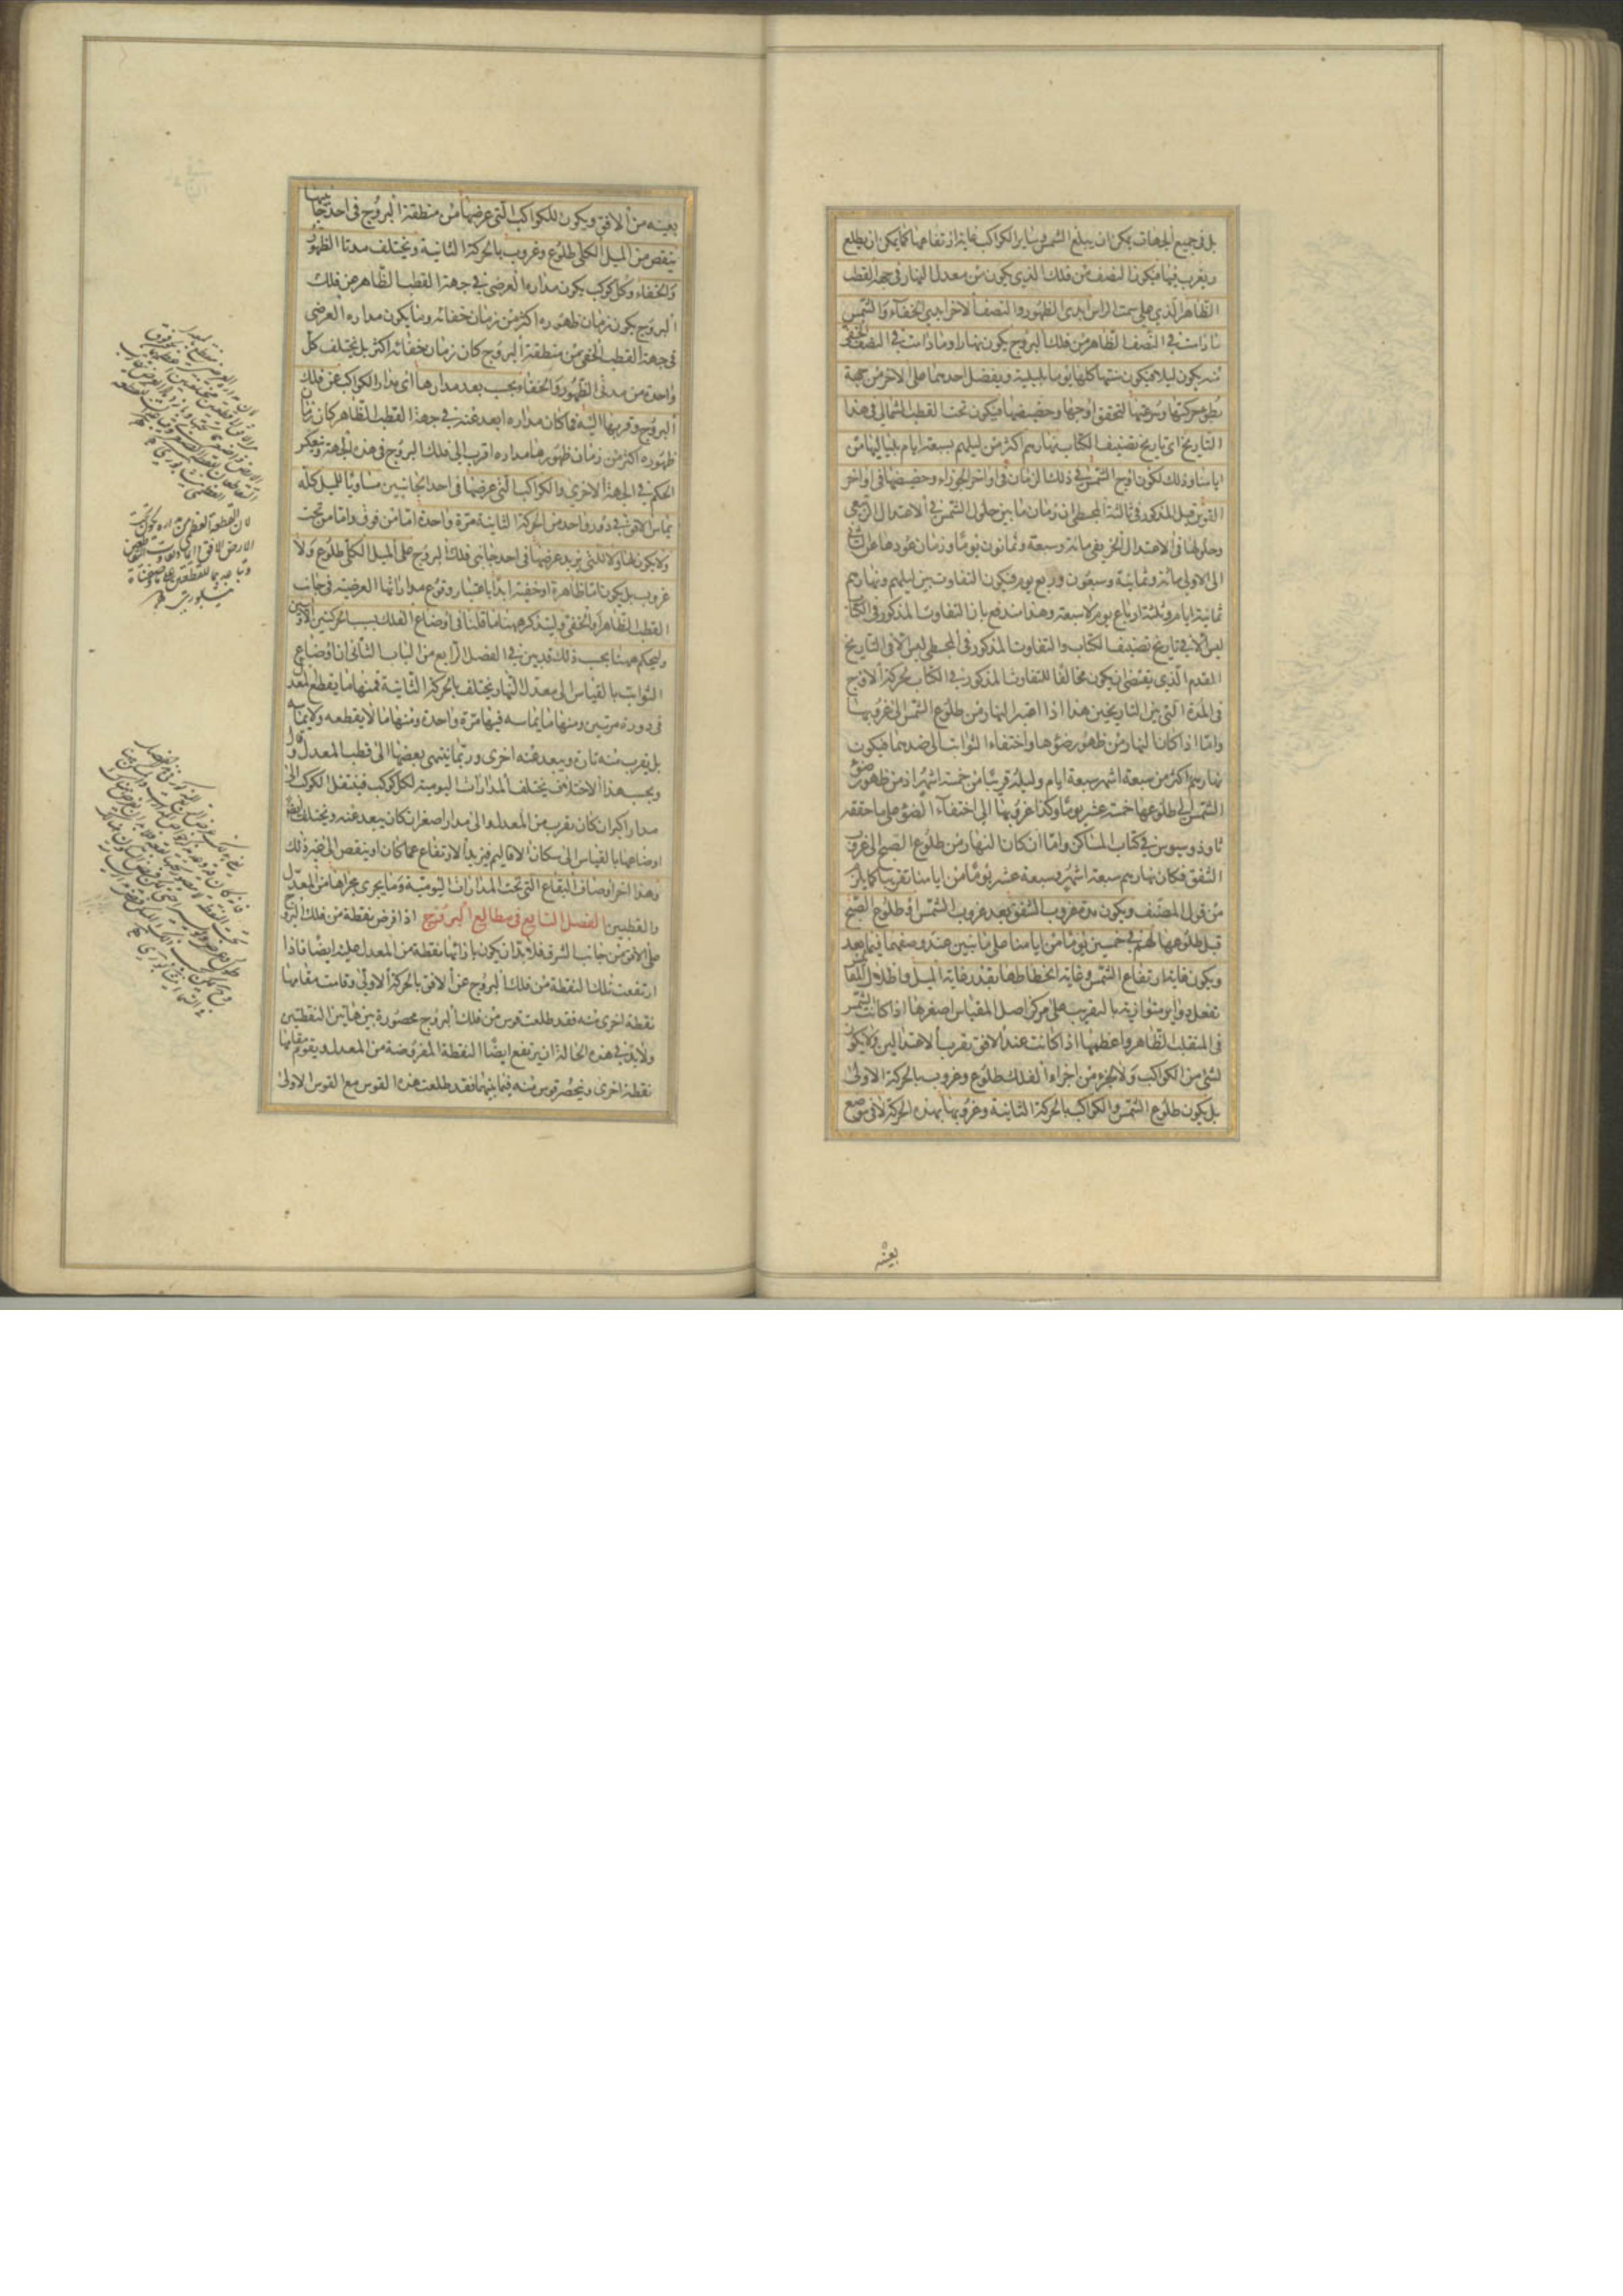 بل في جميع الجهات يمكن ان يبلغ الشمس وساير الكواكب غاية ارتفاعها كما يمكن ان يطلع
ويغرب فيها فيكون النصف من فلك الذي يكون من معدل النهار في جهة القطب
الظاهر الذي على سمت الراس ابدى الظهور والنصف الاخر ابدى الخفاء والشمس
ما دامت في النصف الظاهر من فلك البروج يكون نهارا وما دامت في النصف الخفى
منه يكون ليلا فيكون سنتها كلها يوما بليلته ويفضل احدهما على الاخر من جهة
بطؤ حركتها وسرعتها لتحقق اوجها وحضيضها فيكون تحت القطب الشمالى في هذا
التاريخ اى تاريخ تصنيف الكتاب نهارهم اكثر من ليلهم بسبعة ايام بلياليها من
ايامنا وذلك لكون اوج الشمس في ذلك الزمان في اواخر الجوزاء وحضيضها في اواخر
القوس قيل المذكور في ثالثة المجسطى ان زمان ما بين حلول الشمس في الاعتدال الربيعى
وحلولها في الاعتدال الخريفى مائة وسبعة وثمانون يوما وزمان عودها من الثانى
الى الاولى مائة وثمانية وسبعون وربع يوم فيكون التفاوت بين ليلهم ونهارهم
ثمانية ايام وثلثة ارباع يوم لا سبعة وهذا مندفع بان التفاوت المذكور في الكتاب
ليس الا في تاريخ تصنيف الكتاب والتفاوت المذكور في المجسطى ليس الا في التاريخ
المقدم الذي يقتضى ان يكون مخالفا للتفاوت المذكور في الكتاب بحركة الاوج
في المدة التى بين التاريخين هذا اذا اعتبر النهار من طلوع الشمس الى غروبها
واما اذا كان النهار من ظهور ضوئها واختفاء الثوابت الى ضدهما فيكون
نهارهم اكثر من سبعة اشهر وسبعة ايام وليله قريبا من خمسة اشهر اذ من ظهور ضوء
الشمس الى طلوعها خمسة عشر يوما وكذا غروبها الى اختفاء الضوء على ما حققه
ثاوذوسيوس في كتاب المساكن واما ان كان النهار من طلوع الصبح الى غروب
الشفق فكان نهارهم سبعة اشهر وسبعة عشر يوما من ايامنا تقريبا كما يلزم
من قول المصنف ويكون مدة غروب الشفق بعد غروب الشمس او طلوع الصبح
قبل طلوعها لهم في خمسين يوما من ايامنا على ما نبين عند وصفهما فيما بعد
ويكون غاية ارتفاع الشمس وغاية انحطاطها بقدر غاية الميل واظلال المقائيس
تفعل دواير متوازية بالتقريب على مركز اصل المقياس اصغرها اذا كانت الشمس
في المنقلب الظاهر واعظمها اذا كانت عند الافق بقرب الاعتدالين ولا يكون
لشئ من الكواكب ولا لجزء من اجزاء الفلك طلوع وغروب بالحركة الاولى
بل يكون طلوع الشمس والكواكب بالحركة الثانية وغروبها بهذه الحركة لا في موضع
بعينه
بعينه من الافق ويكون للكواكب التى عرضها من منطقة البروج في احد جانبيها
ينقص من الميل الكلى طلوع وغروب بالحركة الثانية ويختلف مدتا الظهور
والخفاء وكل كوكب يكون مداره العرضى في جهة القطب الظاهر من فلك
البروج يكون زمان ظهوره اكثر من زمان خفائه وما يكون مداره العرضى
في جهة القطب الخفى من منطقة البروج كان زمان خفائه اكثر بل يختلف كل
واحدة من مدتى الظهور والخفاء بحسب بعد مدارها اى مدار الكواكب عن فلك
البروج وقربها اليه فما كان مداره ابعد عنه في جهة القطب الظاهر كان زمان
ظهوره اكثر من زمان ظهور ما مداره اقرب الى فلك البروج في هذه الجهة وبعكس
الحكم في الجهة الاخرى والكواكب التى عرضها في احد الجانبين مساويا للميل كله
يماس الافق في دور واحد من الحركة الثانية مرة واحدة اما من فوق واما من تحت
ولا يكون لها ولا للتى يزيد عرضها في احد جانبى فلك البروج على الميل الكلى طلوع ولا
غروب بل يكون اما ظاهرة او خفية ابدا باعتبار وقوع مداراتها العرضية في جانب
القطب الظاهر او الخفى وليتذكر ههنا ما قلنا في اوضاع الفلك بسبب الحركتين الاوليين
وليحكم ههنا بحسب ذلك قد بين في الفصل الرابع من الباب الثانى ان اوضاع
الثوابت بالقياس الى معدل النهار يختلف بالحركة الثانية فمنها ما يقطع المعدل
في دورة مرتين ومنها ما يماسه فيها مرة واحدة ومنها ما لا يقطعه ولا يماسه
بل يقرب منه تارة ويبعد عنه اخرى وربما ينتهى بعضها الى قطب المعدل وقال
وبحسب هذا الاختلاف يختلف المدارات اليومية لكل كوكب فينتقل الكوكب الى
مدار اكبر ان كان يقرب من المعدل والى مدار اصغر ان كان يبعد عنه ويختلف ايضا
اوضاعها بالقياس الى سكان الاقاليم فيزيد الارتفاع عما كان او ينقص الى غير ذلك
وهذا اخر اوصاف البقاع التى تحت المدارات اليومية وما يجرى مجراها من المعدل
والقطبين الفصل السابع في مطالع البروج اذا فرض نقطة من فلك البروج
على الافق من جانب الشرق فلابد ان يكون بازائها نقطة من المعدل عليه ايضا فاذا
ارتفعت تلك النقطة من فلك البروج عن الافق بالحركة الاولى وقامت مقامها
نقطة اخرى منه فقد طلعت قوس من فلك البروج محصورة بين هاتين النقطتين
ولابد في هذه الحالة ان يرتفع ايضا النقطة المفروضة من المعدل ويقوم مقامها
نقطة اخرى وينحصر قوس منه فيما بينهما فقد طلعت هذه القوس مع القوس الاولى